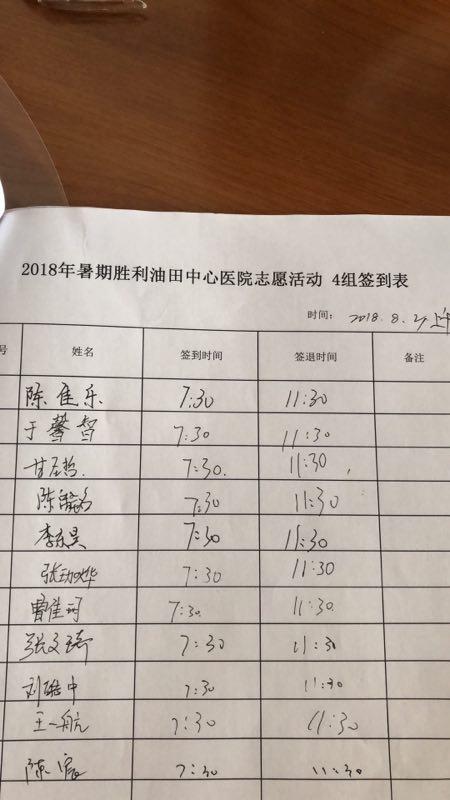 2018年暑期胜利油田中心医院志愿活动 4组签到表
时间: 2018.8.2 上午
号 姓名 签到时间 签退时间 备注
陈佳乐 7:30 11:30
于馨智 7:30 11:30
甘左哲 7:30 11:30
陈 名 7:30 11:30
李东昊 7:30 11:30
张 烨 7:30 11:30
曹佳珂 7:30 11:30
张文琦 7:30 11:30
刘 中 7:30 11:30
王一航 7:30 11:30
陈宸 7:30 11:30